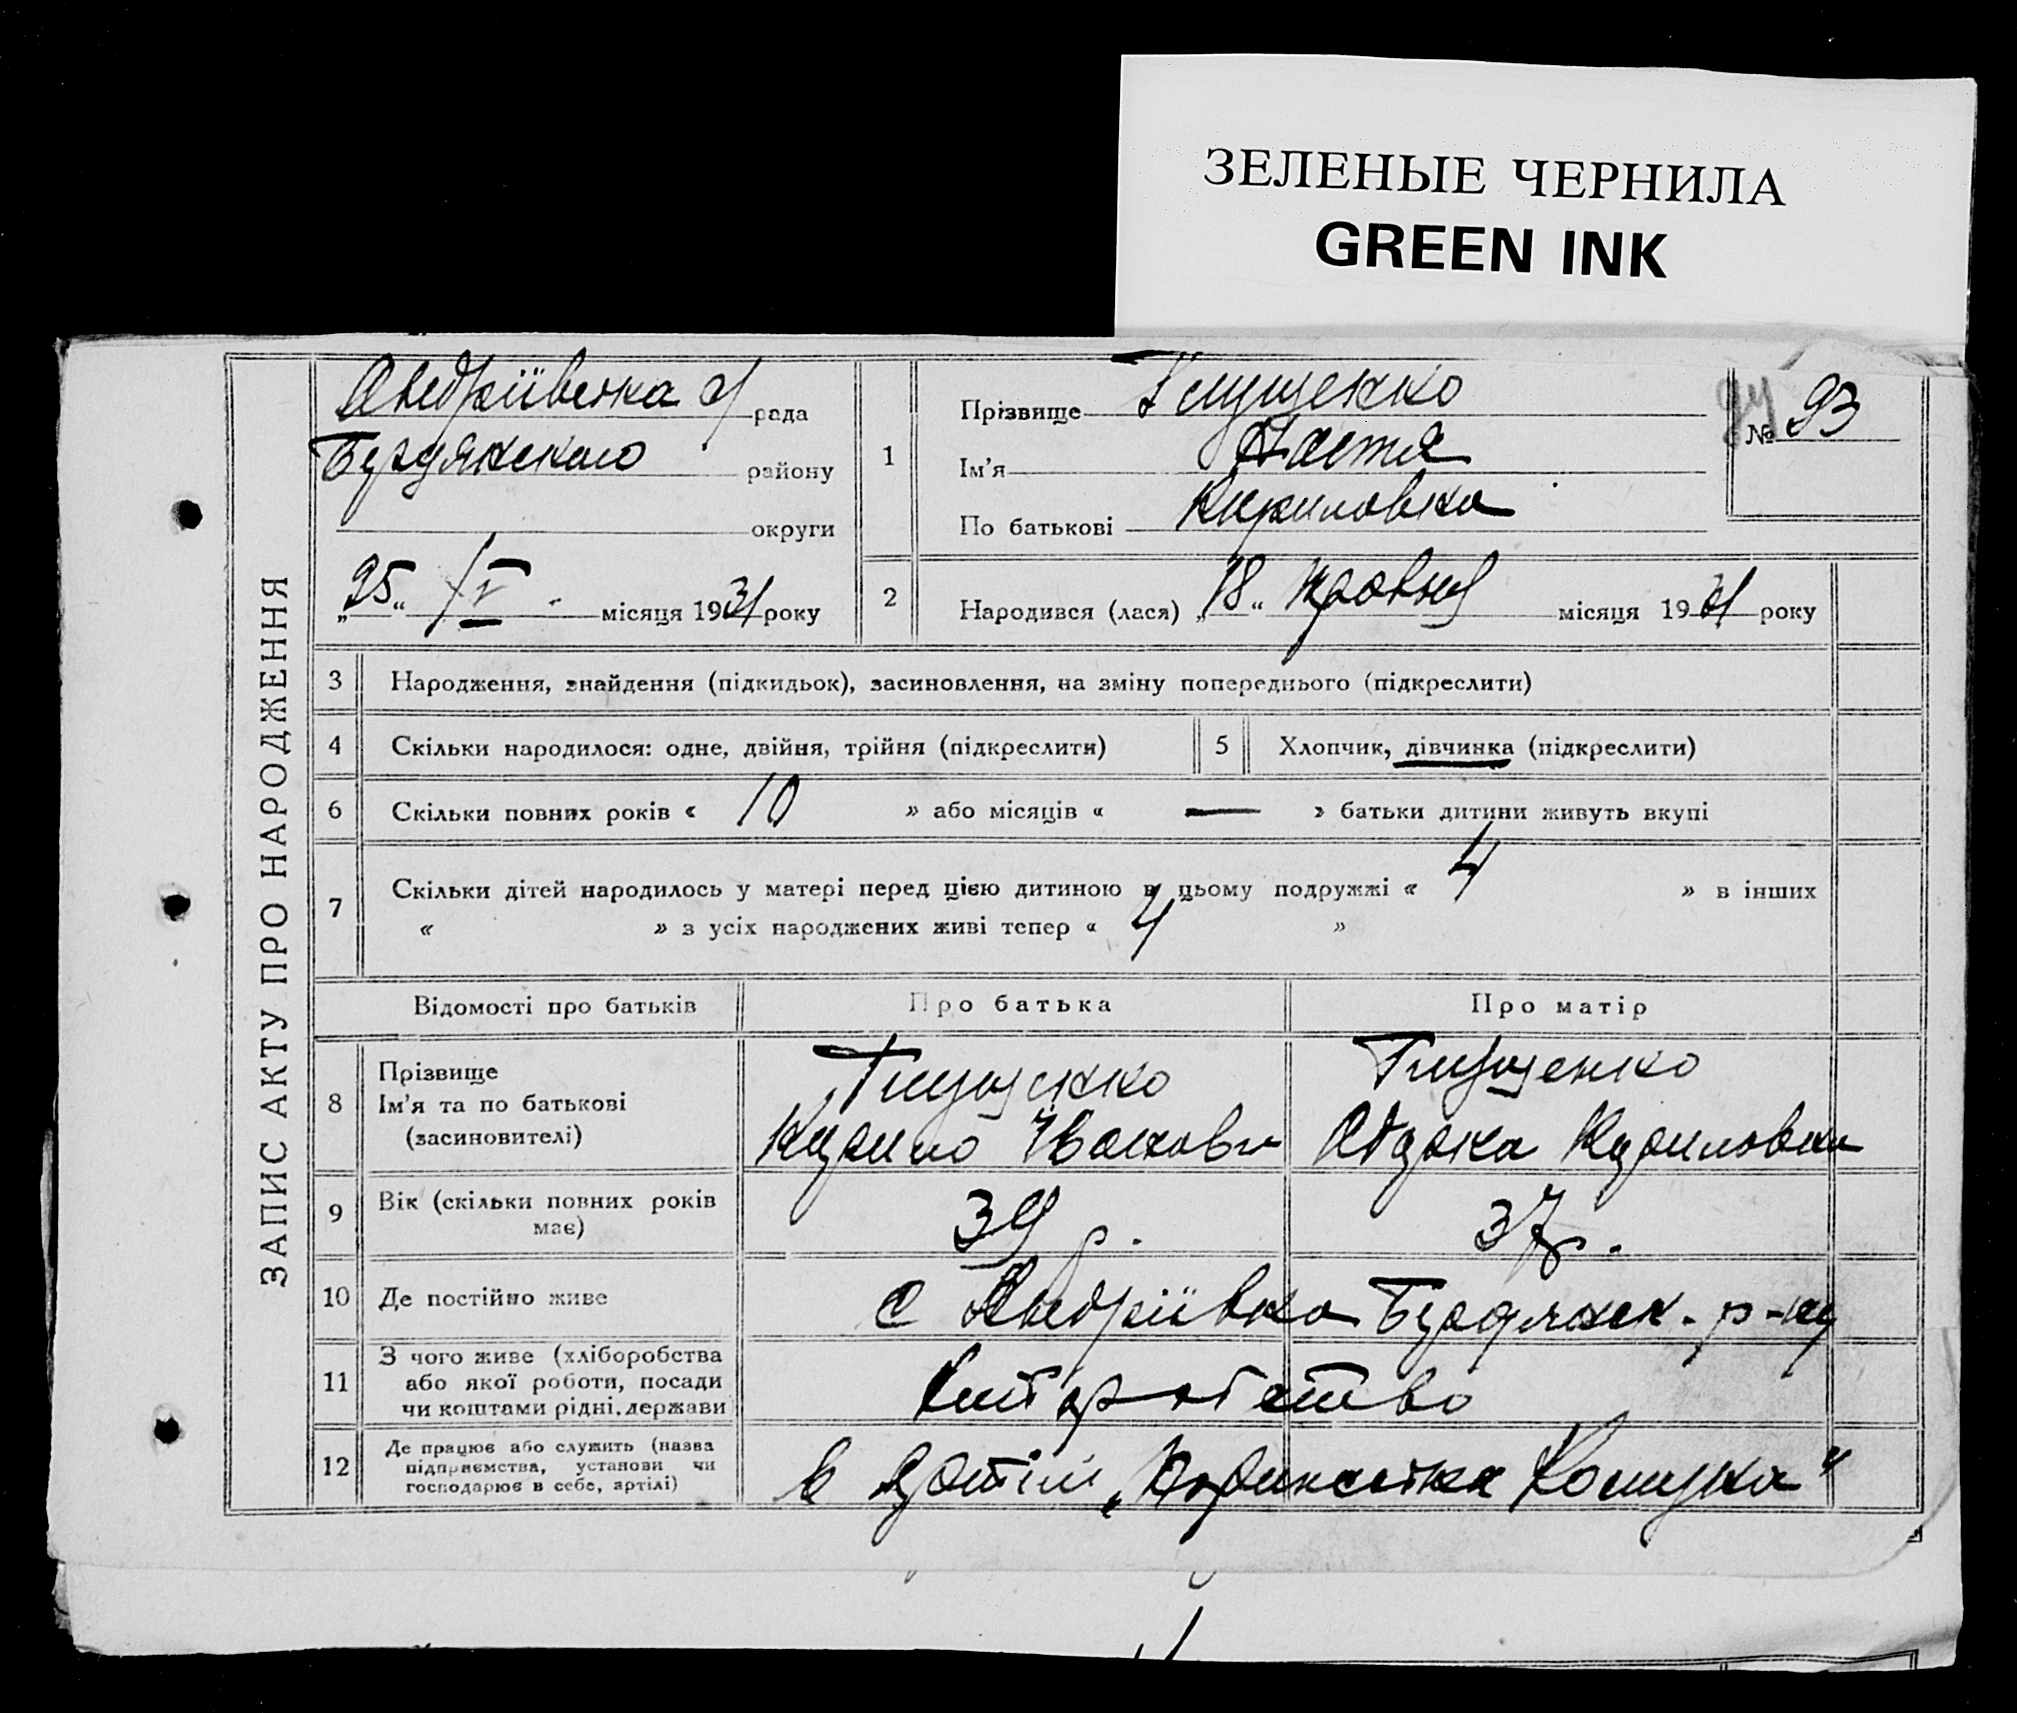 ЗЕЛЕНЫЕ ЧЕРНИЛА
GREEN INK
ЗАПИС АКТУ ПРО НАРОДЖЕННЯ
Андріївська с/рада
Бердянського району
округи
„25“ IV місяця 1931 року
1
Прізвище
Ім'я Настя
По батькові Кириловна
№ 93
2
Народився (лася) „18“ травня місяця 1931 року
3 Народження, знайдення (підкидьок), засиновлення, на зміну попереднього (підкреслити)
4 Скільки народилося: одне, двійня, трійня (підкреслити)
5 Хлопчик, дівчинка (підкреслити)
6 Скільки повних років « 10 » або місяців « — » батьки дитини живуть вкупі
7 Скільки дітей народилось у матері перед цією дитиною в цьому подружжі « 4 » в інших
« » з усіх народжених живі тепер « 4 »
Відомості про батьків Про батька Про матір
8 Прізвище
Ім'я та по батькові
(засиновителі)
Кирило Іванович
Кириловна
9 Вік (скільки повних років
має)
39 р. 37 р.
10 Де постійно живе с Андріївка Бердянськ. р-ну
11 З чого живе (хліборобства
або якої роботи, посади
чи коштами рідні, держави
Хліборобство
12 Де працює або служить (назва
підприємства, установи чи
господарює в себе, артілі)
в артілі „ Комуна“